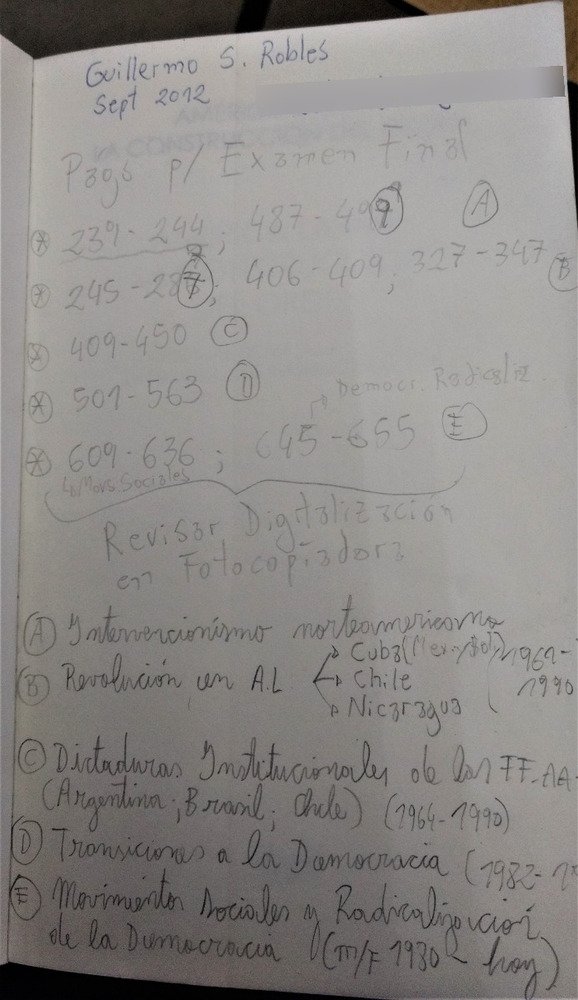 Guillermo S. Robles
Sept 2012
Pags p/ Examen Final
239-244; 487-499 A
245-287; 406-409; 327-347 B
409-450 C
501-563 D
Democr. Radicaliz.
609-636; 645-655 E
Movs. Sociales
Revisar Digitalización
en Fotocopiadora
A Intervencionismo norteamericano
B Revolución en A.L
Cuba
Chile 1990
Nicaragua
C Dictaduras Institucionales de las FF.AA.
(Argentina; Brasil; Chile) (1964-1990)
D Transiciones a la Democracia (1982-
E Movimientos Sociales y Radicalización
de la Democracia (m/F 1930 - hoy)